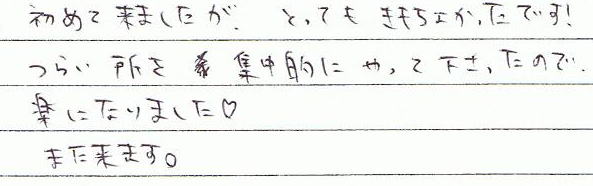 初めて来ましたが、とってもきもちよかったです!
つらい所を集中的にやって下さったので、
楽になりました♡
また来ます。